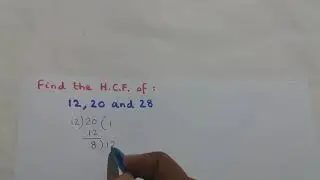 Find the H.C.F. of :
12, 20 and 28
12)20(1
12
8)12